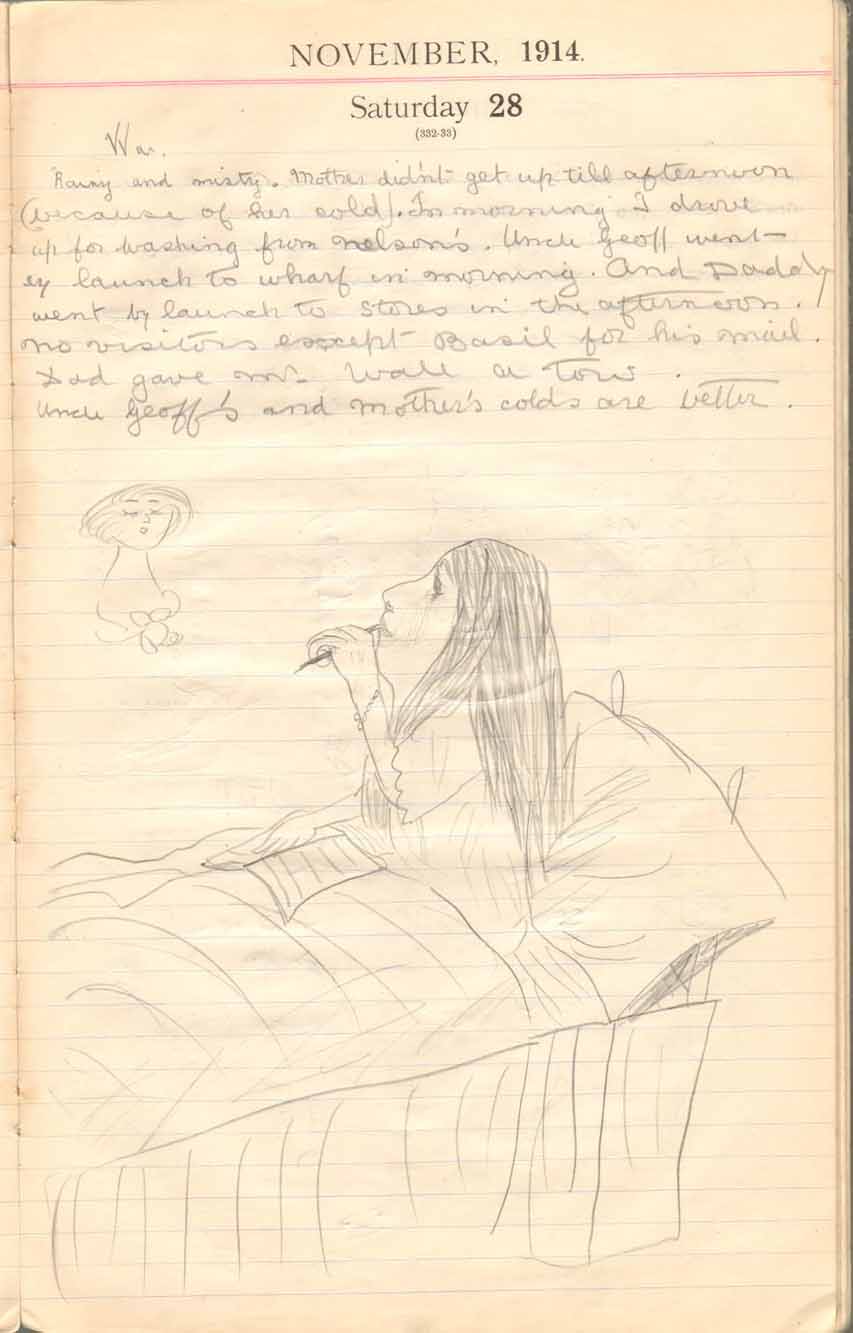 NOVEMBER, 1914.
Saturday 28
(332-33)
War.
Rainy and misty. Mother didn't get up till afternoon
(because of her cold). In morning I drove
up for washing from Nelson's. Uncle Geoff went
by launch to wharf in morning. And Daddy
went by launch to stores in the afternoon.
no visitors except Basil for his mail.
Dad gave Mr. Wall a tow.
Uncle Geoff's and Mother's colds are better.